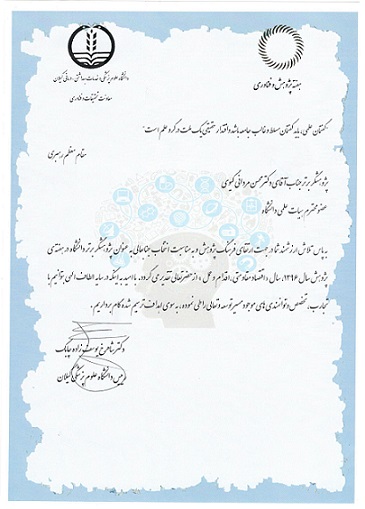 دانشگاه علوم پزشکی و خدمات بهداشتی، درمانی گیلان
معاونت تحقیقات و فناوری
هفته پژوهش و فناوری
گفتمان علمی، باید گفتمان مسلط و غالب جامعه باشد و اقتدار حقیقی یک ملت در گرو علم است.
مقام معظم رهبری
پژوهشگر برتر جناب آقای دکتر محسن مردانی کیوی
عضو محترم هیات علمی دانشگاه
به پاس تلاش ارزشمند شما در جهت ارتقای فرهنگ پژوهش و به مناسبت انتخاب جنابعالی به عنوان پژوهشگر برتر دانشگاه در هفته ی
پژوهش سال ۱۳۹۶، سال «اقتصاد مقاومتی، اقدام و عمل» از حضرتعالی تقدیر می گردد. با امید به اینکه در سایه الطاف الهی توانیم با
تجارب، تخصص و توانمندی های موجود مسیر توسعه و تعالی را طی نموده، به سوی اهداف ترسیم شده گام برداریم.
دکتر شاهرخ یوسف زاده چابک
رییس دانشگاه علوم پزشکی گیلان